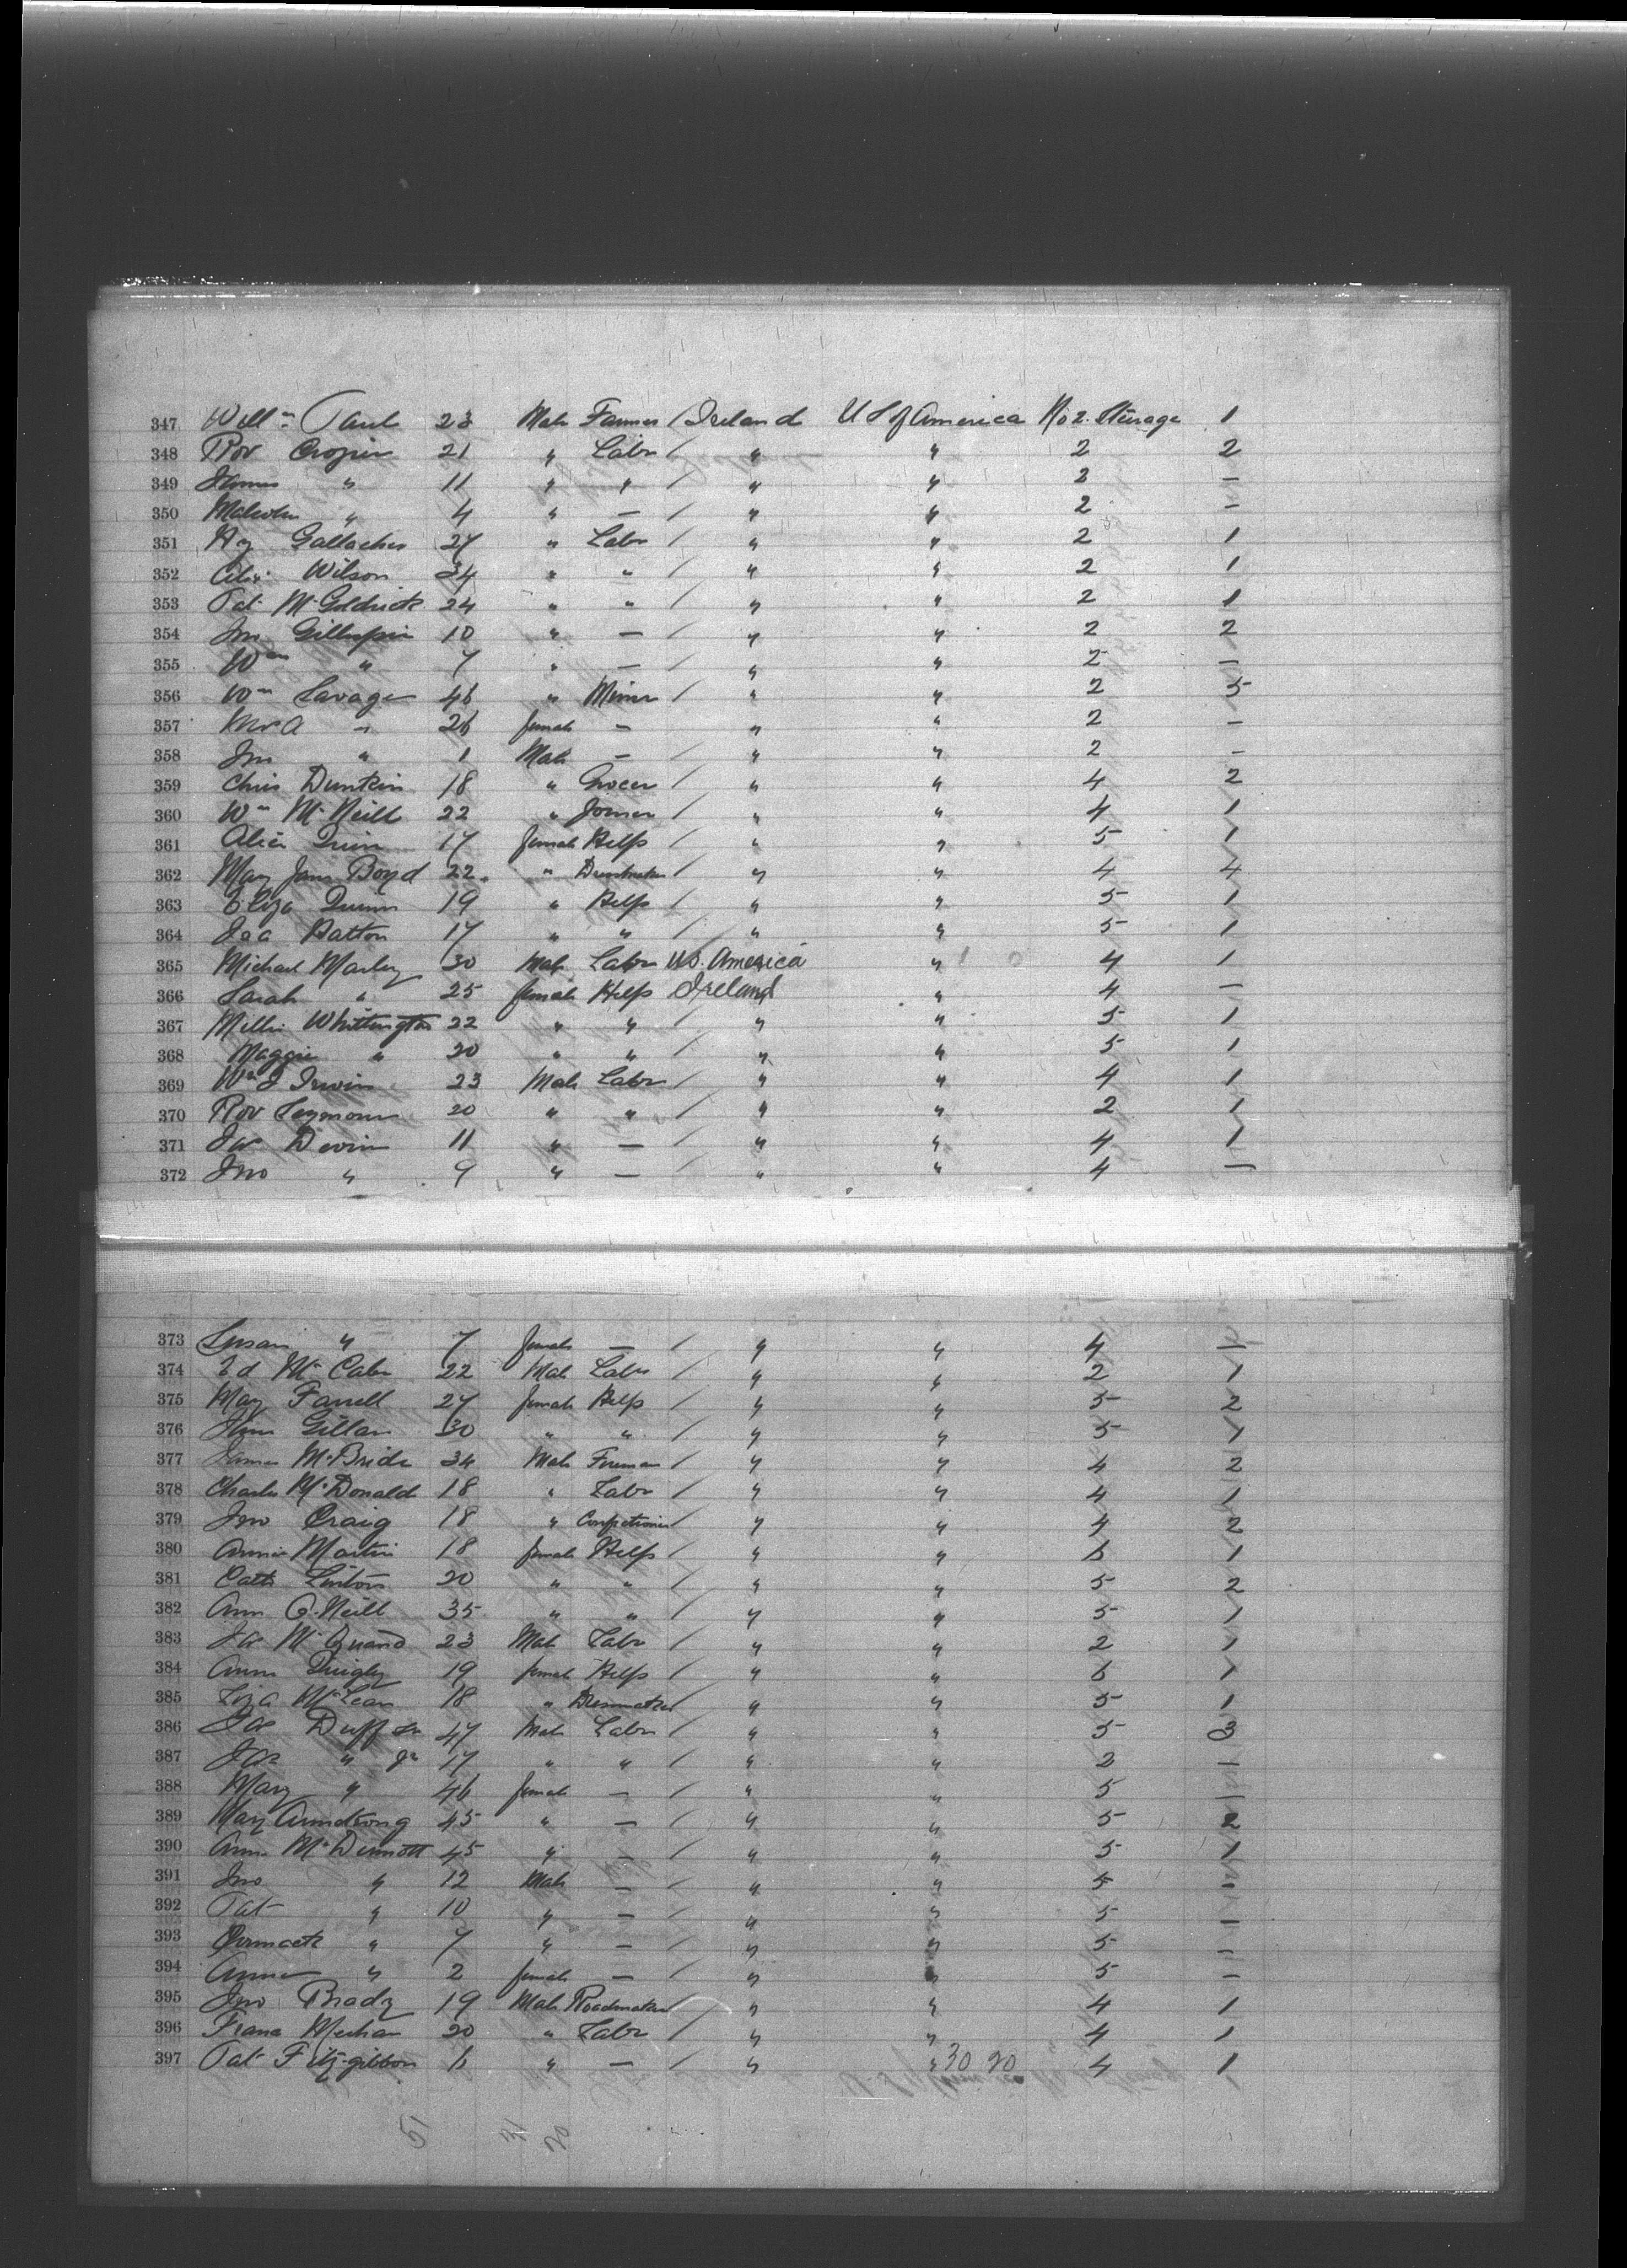 347 Willm Paul 23 Male Farmer / Ireland U S of America No 2. Steerage 1
348 Rob 21 " Labr / " " 2 2
349 James " 11 " " / " " 2 —
350 Malcolm " 4 " — / " " 2 —
351 Hy Gallacher 27 " Labr / " " 2 1
352 Alex Wilson 34 " " / " " 2 1
353 Pat McGoldrick 24 " " / " " 2 1
354 Jno Gillespie 10 " — / " " 2 2
355 Wm " 7 " — / " " 2 —
356 Wm Savage 46 " Miner / " " 2 5
357 " 26 female — " " 2 —
358 Jno " 1 Male — / " " 2 —
359 Chris Dunkin 18 " Grocer / " " 4 2
360 Wm McNeill 22 " Joiner / " " 4 1
361 Alice Quin 17 female Help / " " 5 1
362 Mary Jane Boyd 22 " Dressmaker / " " 4 4
363 Eliza Quinn 19 " Help / " " 5 1
364 Hatton 17 " " / " " 5 1
365 Michael Marley 30 Male Labr U.S. America " 4 1
366 Sarah " 25 female Help Ireland " 4 —
367 Millie Whittington 22 " " / " " 5 1
368 Maggie " 20 " " / " " 5 1
369 Wm J Irwin 23 Male Labr / " " 4 1
370 Rob Seymour 20 " " / " " 2 1
371 Jas Devin 11 " — / " " 4 1
372 Jno " 9 " — / " " 4 —
373 Susan " 7 female — / " " 4 —
374 Ed McCabe 22 Male Labr / " " 2 1
375 Mary Farrell 27 female Help / " " 5 2
376 Gillan 30 " " / " " 5 1
377 James McBride 34 Male Fireman / " " 4 2
378 Charles McDonald 18 " Labr / " " 4 1
379 Jno Craig 18 " Confectioner / " " 4 2
380 Annie Martin 18 female Help / " " 6 1
381 Cath Linton 20 " " / " " 5 2
382 Ann O'Neill 35 " " / " " 5 1
383 Jas 23 Male Labr / " " 2 1
384 Ann Quigly 19 female Help / " " 6 1
385 Liza McLean 18 " Dressmaker / " " 5 1
386 Jas Duff Sr 47 Male Labr / " " 5 3
387 Jas " Jr 17 " " / " " 2 —
388 Mary " 46 female — / " " 5 —
389 Mary Armstrong 45 " — / " " 5 2
390 Ann McDermott 45 " — / " " 5 1
391 Jno " 12 Male — / " " 5 —
392 Pat " 10 " — / " " 5 —
393 Cormack " 7 " — / " " 5 —
394 Anne " 2 female — / " " 5 —
395 Jno Brady 19 Male Roadmaker / " " 4 1
396 Frans Meehan 20 " Labr / " " 4 1
397 Pat Fitzgibbon 6 " — / " " 30 20 4 1